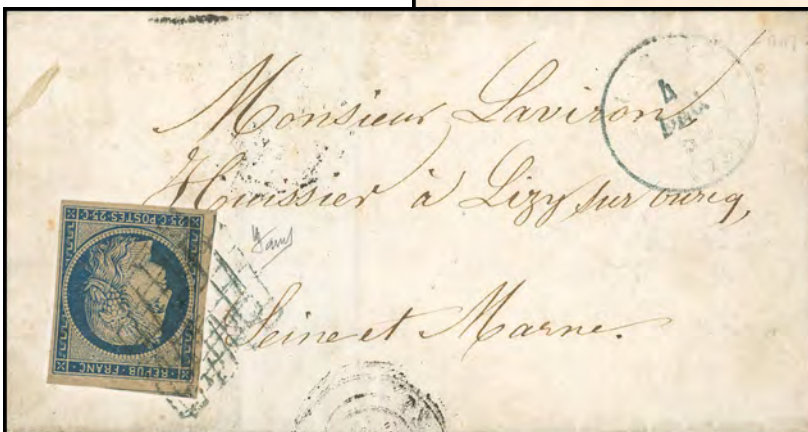 Monsieur Laviron
Huissier à Lizy sur ourcq,
Seine et Marne.
4
DEC
25 C·POSTES·25 C
REPUB·FRANC